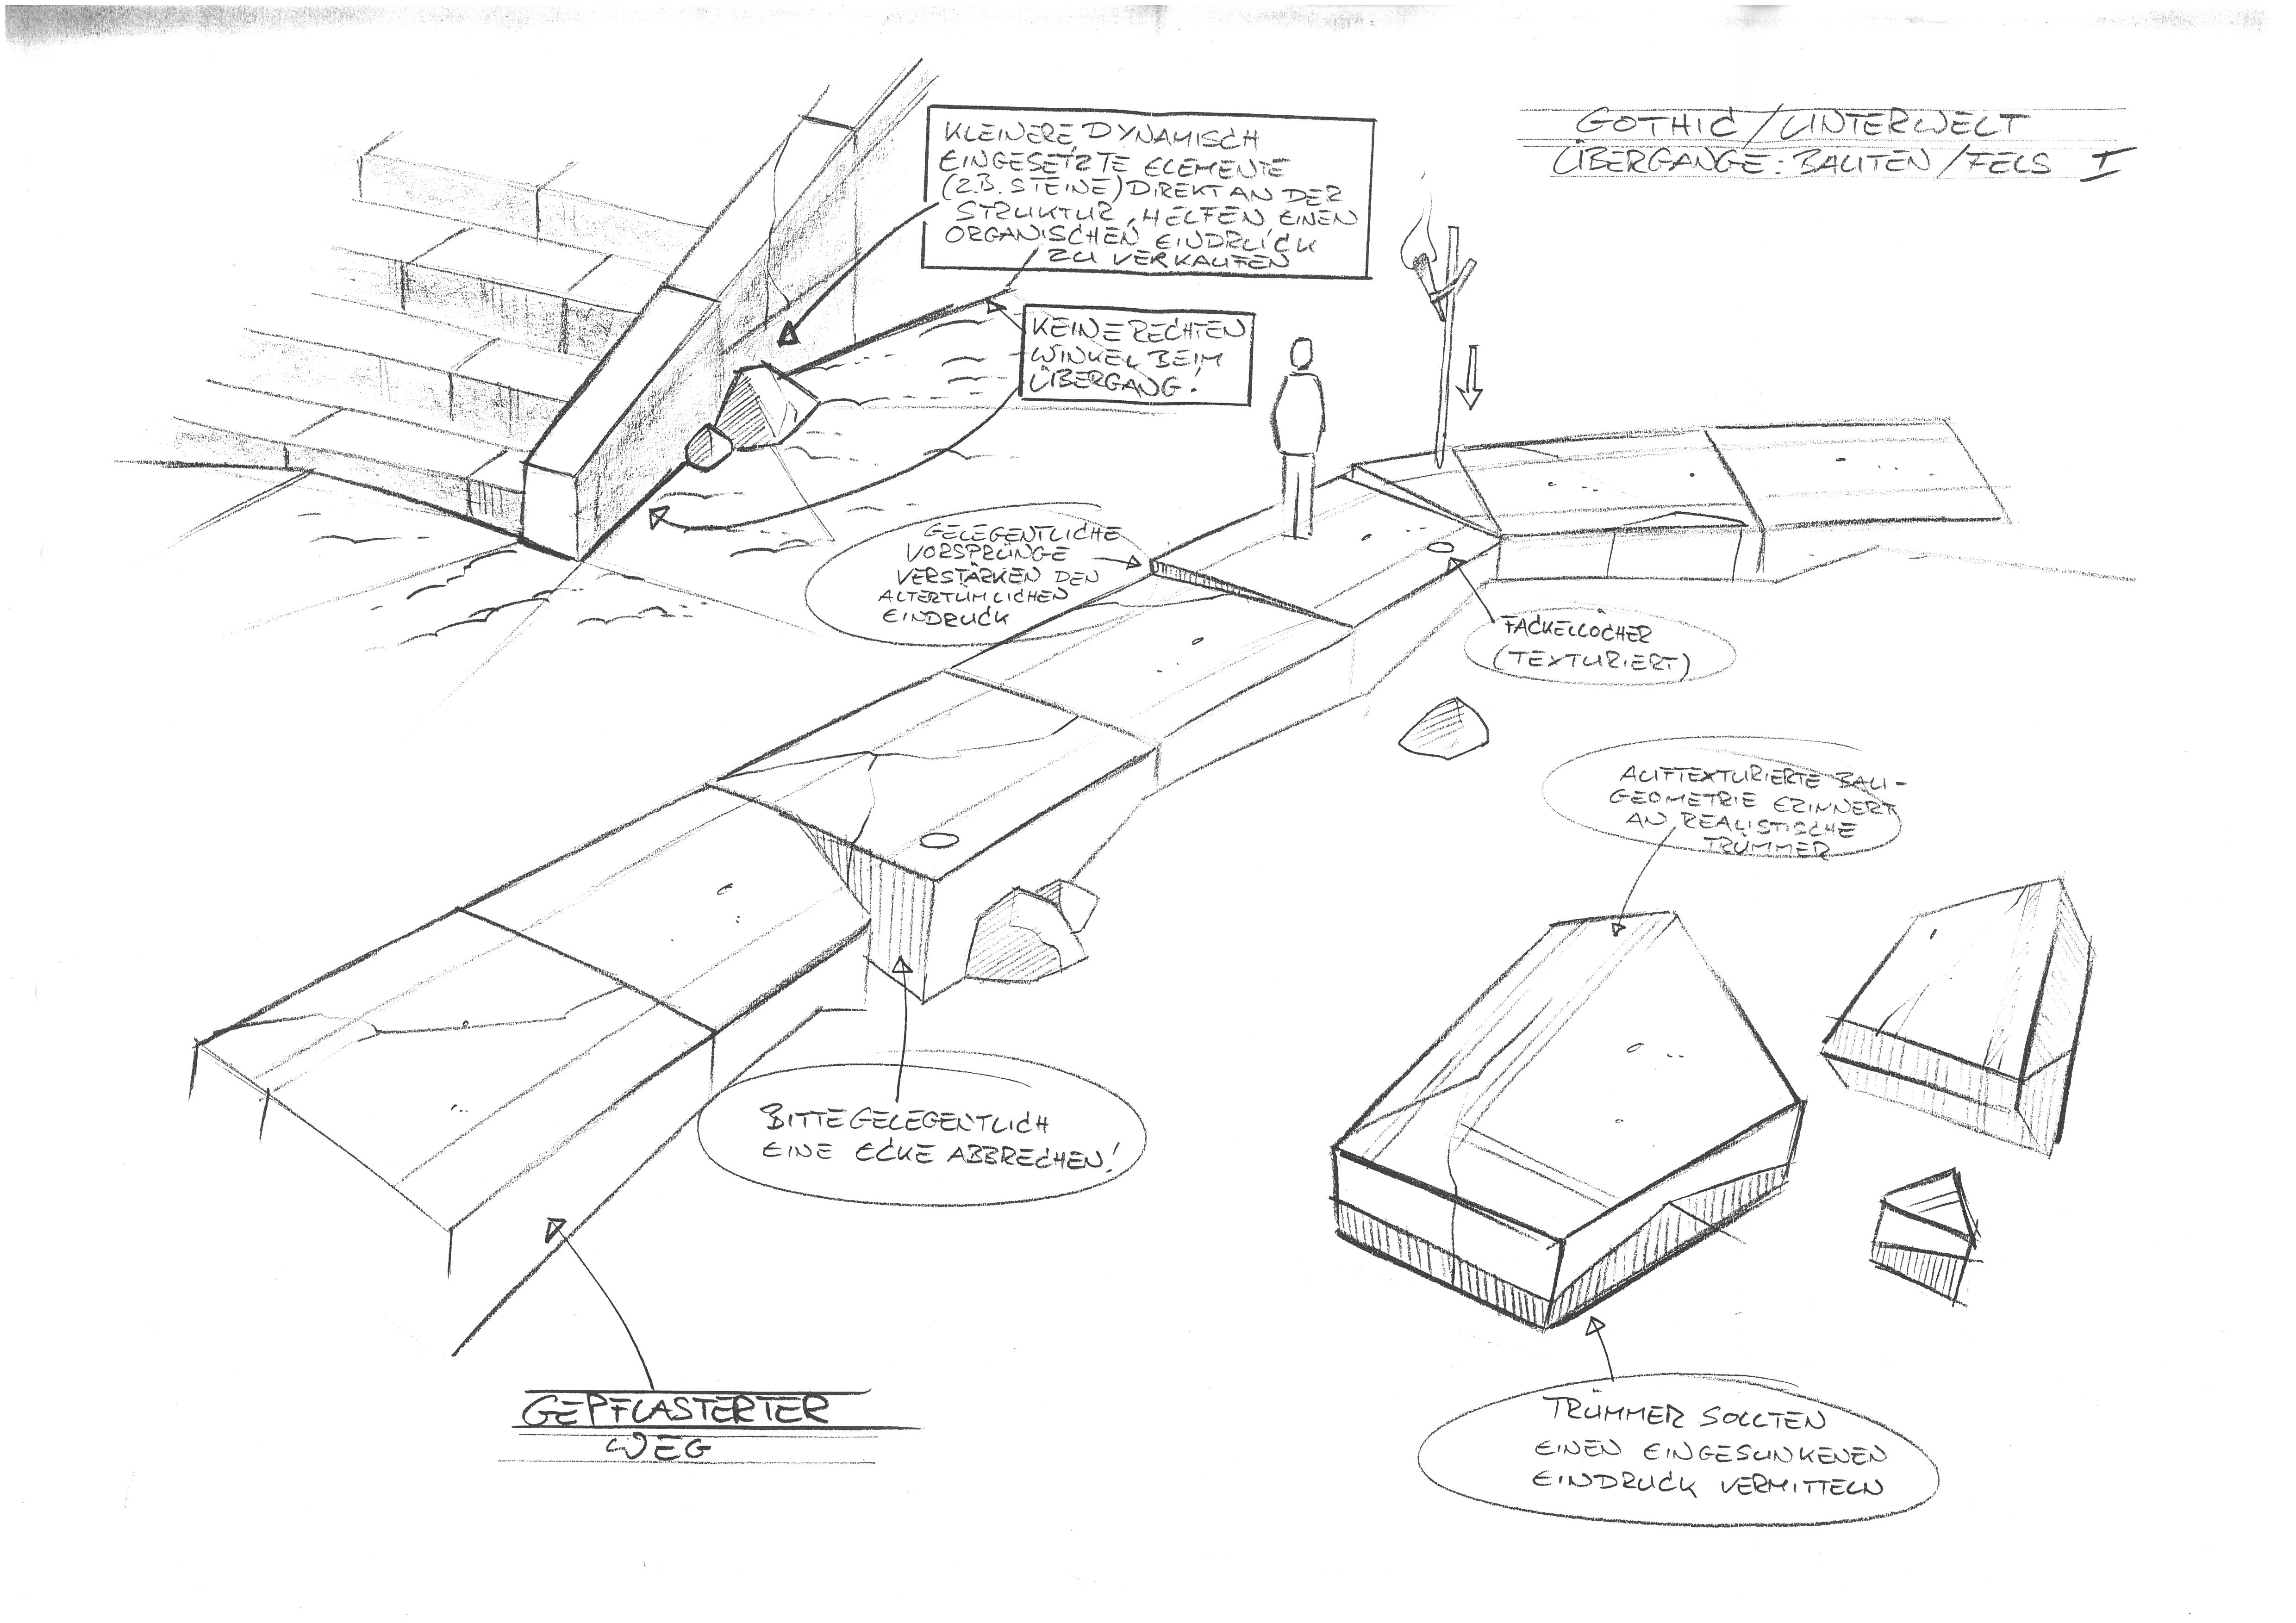 GOTHIC / UNTERWELT
ÜBERGÄNGE: BAUTEN / FELS I
KLEINERE, DYNAMISCH
EINGESETZTE ELEMENTE
(Z.B. STEINE) DIREKT AN DER
STRUKTUR, HELFEN EINEN
ORGANISCHEN EINDRUCK
ZU VERKAUFEN
KEINE RECHTEN
WINKEL BEIM
ÜBERGANG!
GELEGENTLICHE
VORSPRÜNGE
VERSTÄRKEN DEN
ALTERTUMLICHEN
EINDRUCK
FACKELLÖCHER
(TEXTURIERT)
AUFTEXTURIERTE BAU-
GEOMETRIE ERINNERT
AN REALISTISCHE
TRÜMMER
BITTE GELEGENTLICH
EINE ECKE ABBRECHEN!
GEPFLASTERTER
WEG
TRÜMMER SOLLTEN
EINEN EINGESUNKENEN
EINDRUCK VERMITTELN